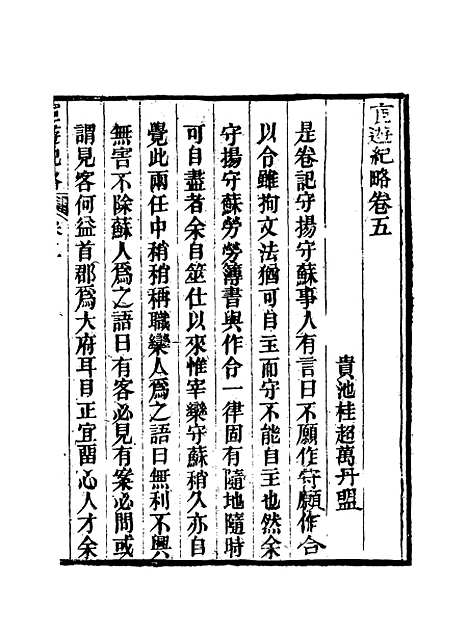 宦遊紀略卷五
貴池桂超萬丹盟
是卷記守揚守蘇事人有言曰不願作守願作合
以令雖拘文法猶可自主而守不能自主也然余
守揚守蘇勞勞簿書與作合一律固有隨地隨時
可自盡者余自筮仕以來惟宰欒守蘇稍久亦自
覺此兩任中稍稍稱職欒人爲之語曰無利不興
無害不除蘇人爲之語曰有客必見有案必問或
謂見客何益首郡爲大府耳目正宜畱心人才余
宦遊紀略